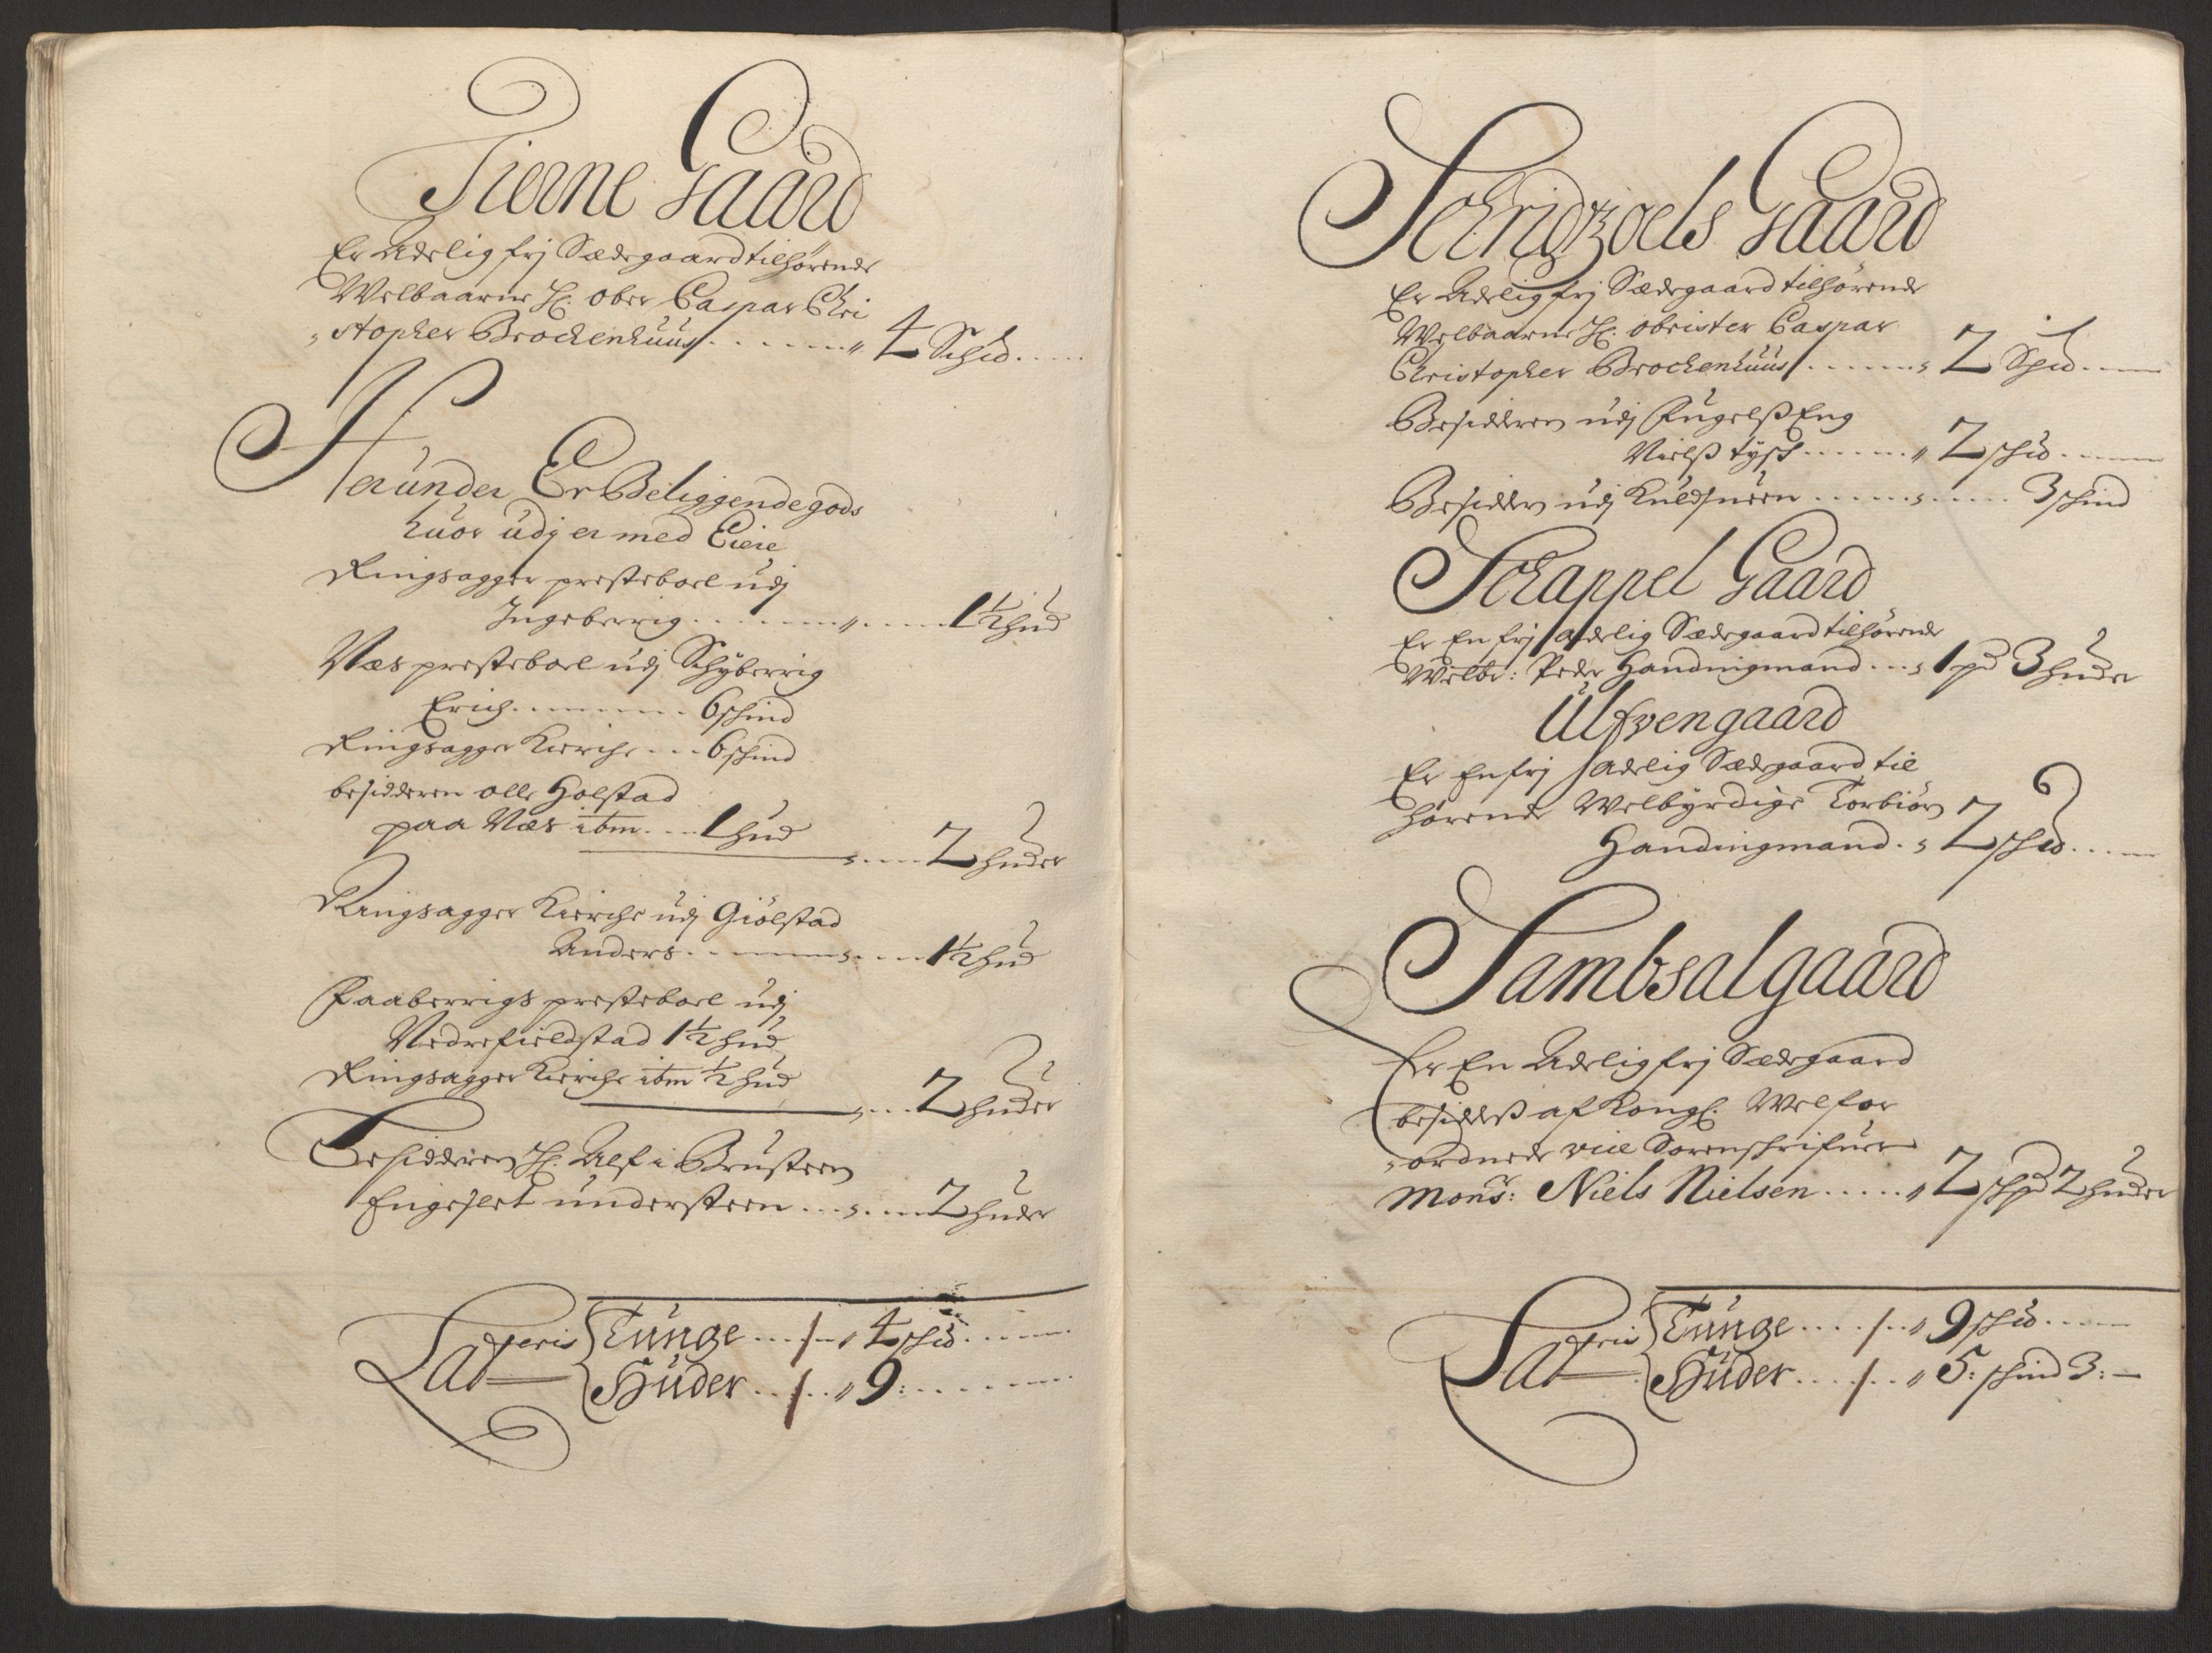 Tierne Gaard
Er Adelig frj Sædegaard tilhørende
Welbaarne H: Ober Caspar Chri
„stopher Brockenhuus ....... „ 4 Schd ....
Herunder Er Beliggende gods
huor udj er med Eiere
Ringsagger presteboel udj
Ingeberrig ....... „ .... 1½ hud
Næs presteboel udj Schyberrig
Erich ........ 6 schind
Ringsagger Kierche ... 6 schind
besidderen Olle Holstad
paa Næs ibm ... 1 hud
„ .... 2 huder
Ringsagger Kierche udj Giölstad
Anders ........ „ .... 1½ hud
Faaberrigs presteboel udj
Nedrefieldstad 1½ hud
Ringsagger Kierche ibm ½ hud
„ ... 2 huder
Besidderen H: Alf i Brusteen
Engeslet understeen ... „ .... 2 huder
Lateris { Tunge .... / .. „ 4 schd ......
{ Huder .... / .. „ 9: .......
Schridtzoels Gaard
Er Adelig frj Sædegaard tilhørende
Welbaarne H: obrister Caspar
Christopher Brockenhuus ...... „ 2 Spd ....
Besidderen udj Fugelß Eng
Nielß tysk ...... „ 2 schd .....
Besidder udj Kuldsueen ...... „ .... 3 schind
Schappel Gaard
Er En frj adelig Sædegaard tilhørende
Welb: Peder Handingmand ... „ 1 pd 3 huder
Ulfvengaard
Er En frj adelig Sædegaard til
hørende Welbyrdige Torbiörn
Handingmand . „ 2 schd ....
Sambsalgaard
Er En Adelig frj Sædegaard
besiddeß af Kongl: Wel for
„ordnede vice Sorenschrifuer
Mons: Niels Nielsen ..... „ 2 schpd 2 huder
Lateris { Tunge .... / .. „ 9 schd .....
{ Huder .... / .. „ 5: schind 3: —